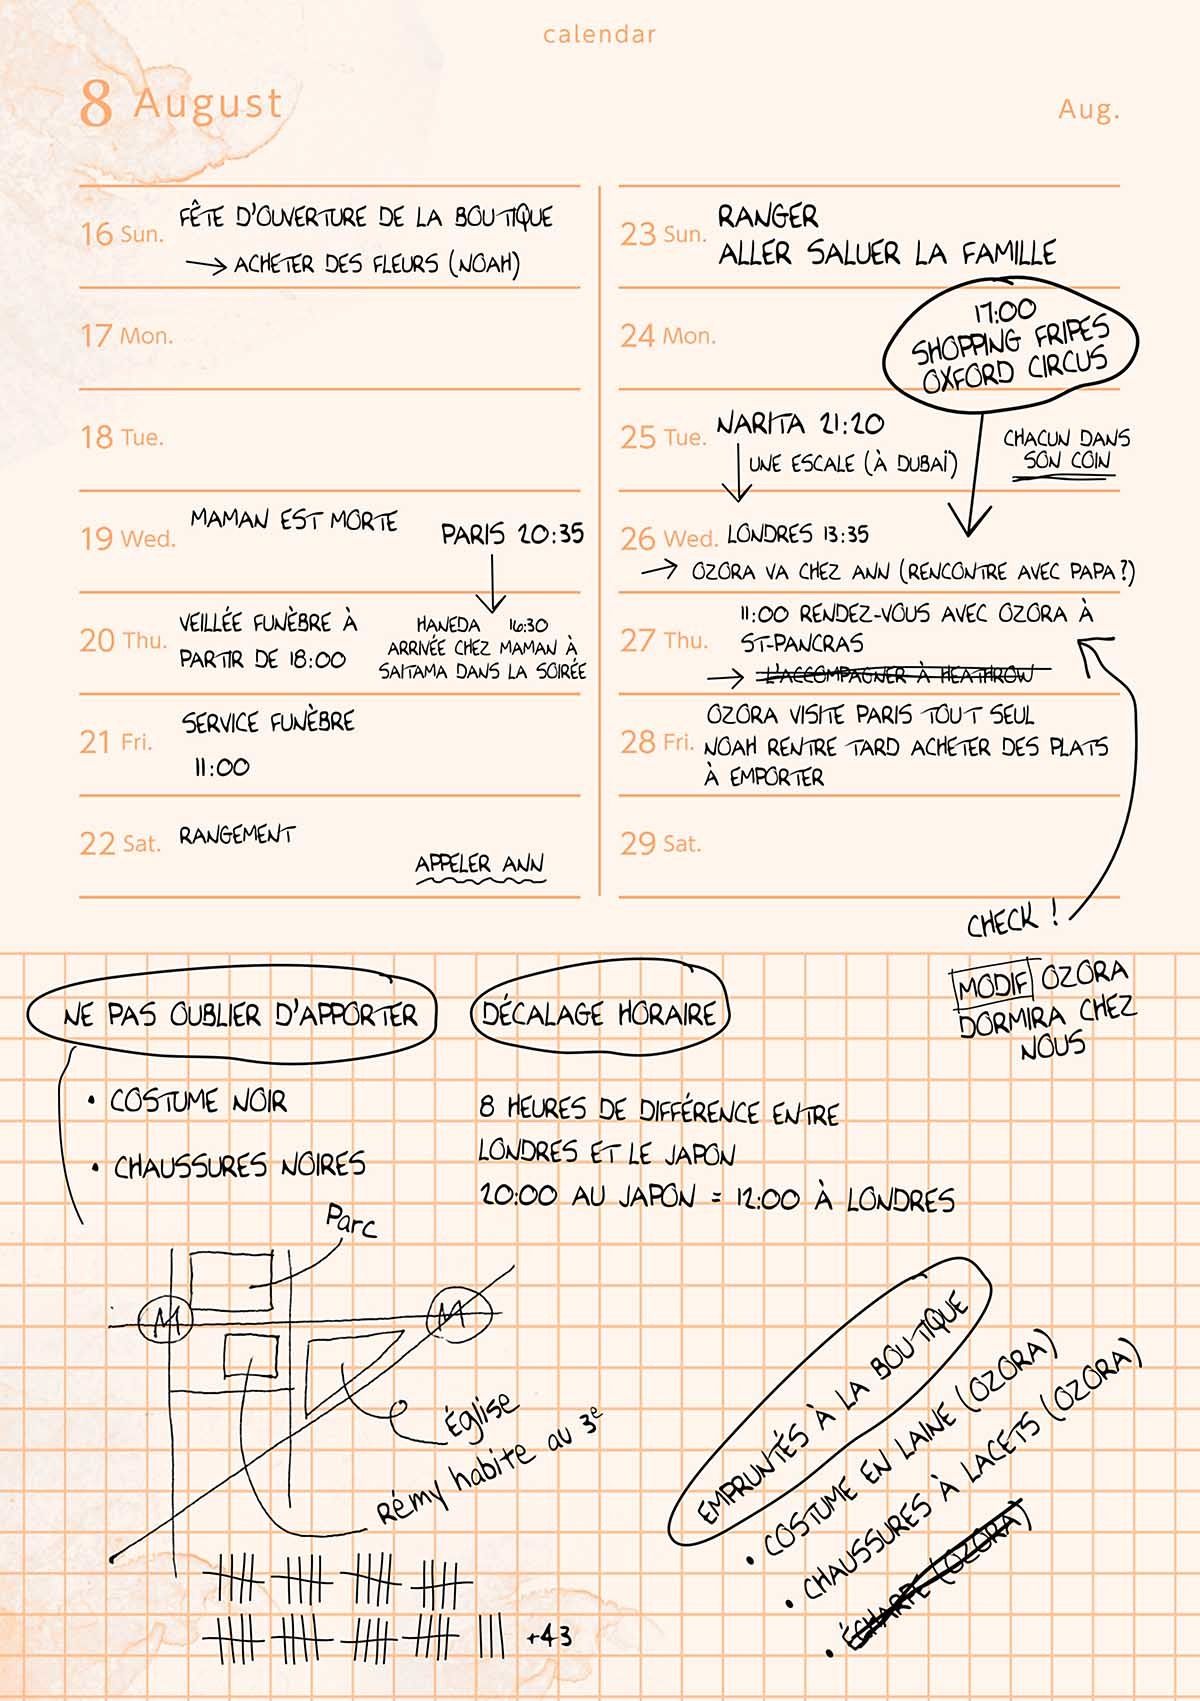 calendar
8 August
Aug.
16 Sun.
FÊTE D'OUVERTURE DE LA BOUTIQUE
→ ACHETER DES FLEURS (NOAH)
17 Mon.
18 Tue.
19 Wed.
MAMAN EST MORTE
PARIS 20:35
20 Thu.
VEILLÉE FUNÈBRE À
PARTIR DE 18:00
HANEDA 16:30
ARRIVÉE CHEZ MAMAN À
SAITAMA DANS LA SOIRÉE
21 Fri.
SERVICE FUNÈBRE
11:00
22 Sat.
RANGEMENT
APPELER ANN
23 Sun.
RANGER
ALLER SALUER LA FAMILLE
24 Mon.
17:00
SHOPPING FRIPES
OXFORD CIRCUS
25 Tue.
NARITA 21:20
UNE ESCALE (À DUBAÏ)
CHACUN DANS
SON COIN
26 Wed.
LONDRES 13:35
→ OZORA VA CHEZ ANN (RENCONTRE AVEC PAPA ?)
27 Thu.
11:00 RENDEZ-VOUS AVEC OZORA À
ST-PANCRAS
→ L'ACCOMPAGNER À HEATHROW
28 Fri.
OZORA VISITE PARIS TOUT SEUL
NOAH RENTRE TARD ACHETER DES PLATS
À EMPORTER
29 Sat.
CHECK !
MODIF OZORA
DORMIRA CHEZ
NOUS
NE PAS OUBLIER D'APPORTER
• COSTUME NOIR
• CHAUSSURES NOIRES
DÉCALAGE HORAIRE
8 HEURES DE DIFFÉRENCE ENTRE
LONDRES ET LE JAPON
20:00 AU JAPON = 12:00 À LONDRES
Parc
M
M
Église
Rémy habite au 3e
+43
EMPRUNTÉS À LA BOUTIQUE
• COSTUME EN LAINE (OZORA)
• CHAUSSURES À LACETS (OZORA)
• ÉCHARPE (OZORA)